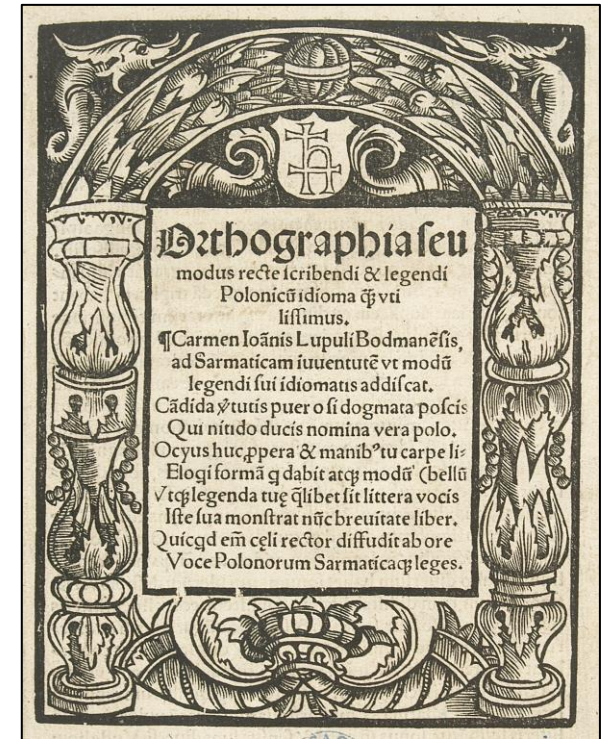 Orthographia seu
modus recte scribendi & legendi
Polonicū idioma q̄ꝫ vti
lissimus.
¶Carmen Ioānis Lupuli Bodmanēsis,
ad Sarmaticam iuuentutē vt modū
legendi sui idiomatis addiscat.
Cādida v̓tutis puer o si dogmata poscis
Qui nitido ducis nomina vera polo.
Ocyus huc ꝓpera & manibꝰ tu carpe li=
Eloqi formā q dabit atqꝫ modū (bellū
Vtqꝫ legenda tuę q̄libet sit littera vocis
Iste sua monstrat nūc breuitate liber.
Quicqd em̄ cęli rector diffudit ab ore
Voce Polonorum Sarmaticaqꝫ leges.